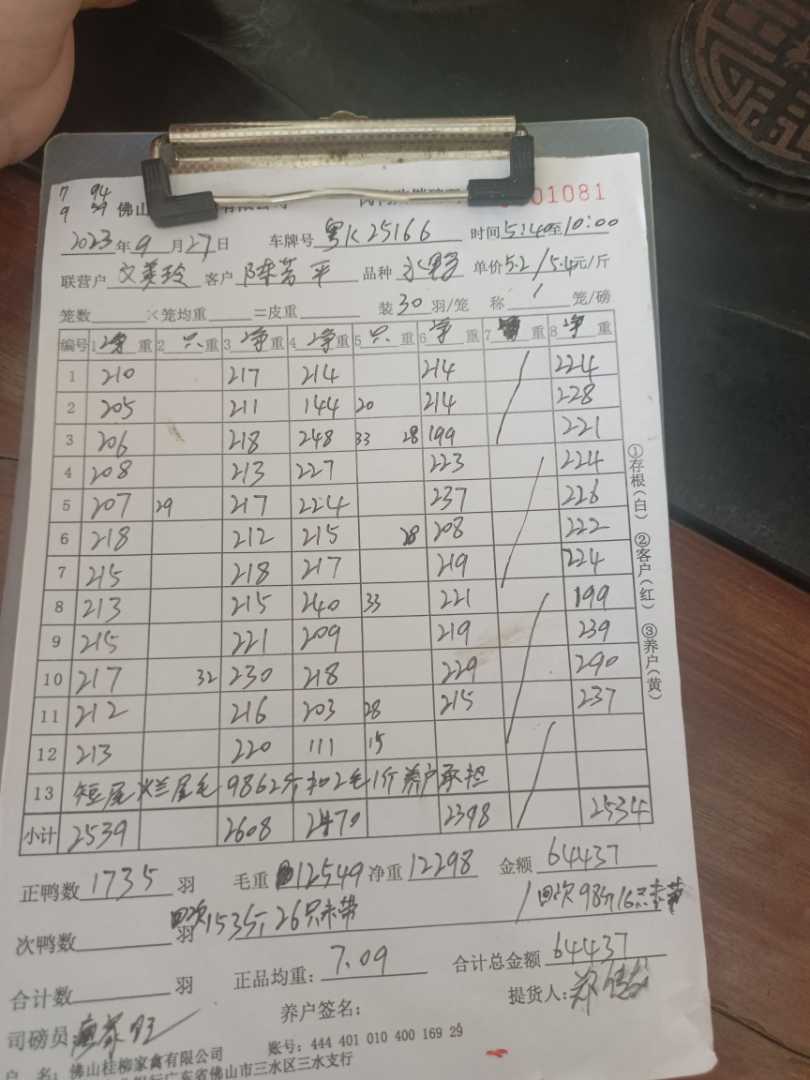 7 94
9
佛山 01081
2023年9月27日 车牌号 粤K25166 时间5:40至10:00
联营户 文英玲 客户 陈芳平 品种 水鸭 单价5.2/5.4元/斤
笼数 ×笼均重 =皮重 装30羽/笼 称 1 笼/磅
编号 1 净重 2 只重 3 净重 4 净重 5 只重 6 净重 7 重 8 净重
1 210 217 214 214 224
2 205 211 144 20 214 228
3 206 218 248 33 28 199 221
4 208 213 227 223 224
5 207 29 217 224 237 226
6 218 212 215 28 208 222
7 215 218 217 219 224
8 213 215 240 33 221 199
9 215 221 209 219 239
10 217 32 230 218 229 290
11 212 216 203 28 215 237
12 213 220 111 15
13 短尾烂尾毛9862斤扣2毛1斤养户承担
小计 2539 2608 2470 2398 2534
①存根(白) ②客户(红) ③养户(黄)
正鸭数 1735 羽 毛重 12549 净重 12298 金额 64437
次鸭数 羽 回次153斤26只未带 回次98斤16只未带
合计数 羽 正品均重: 7.09 合计总金额 64437
司磅员 养户签名: 提货人:
户 名: 佛山桂柳家禽有限公司 账号: 444 401 010 400 169 29
银行广东省佛山市三水区三水支行